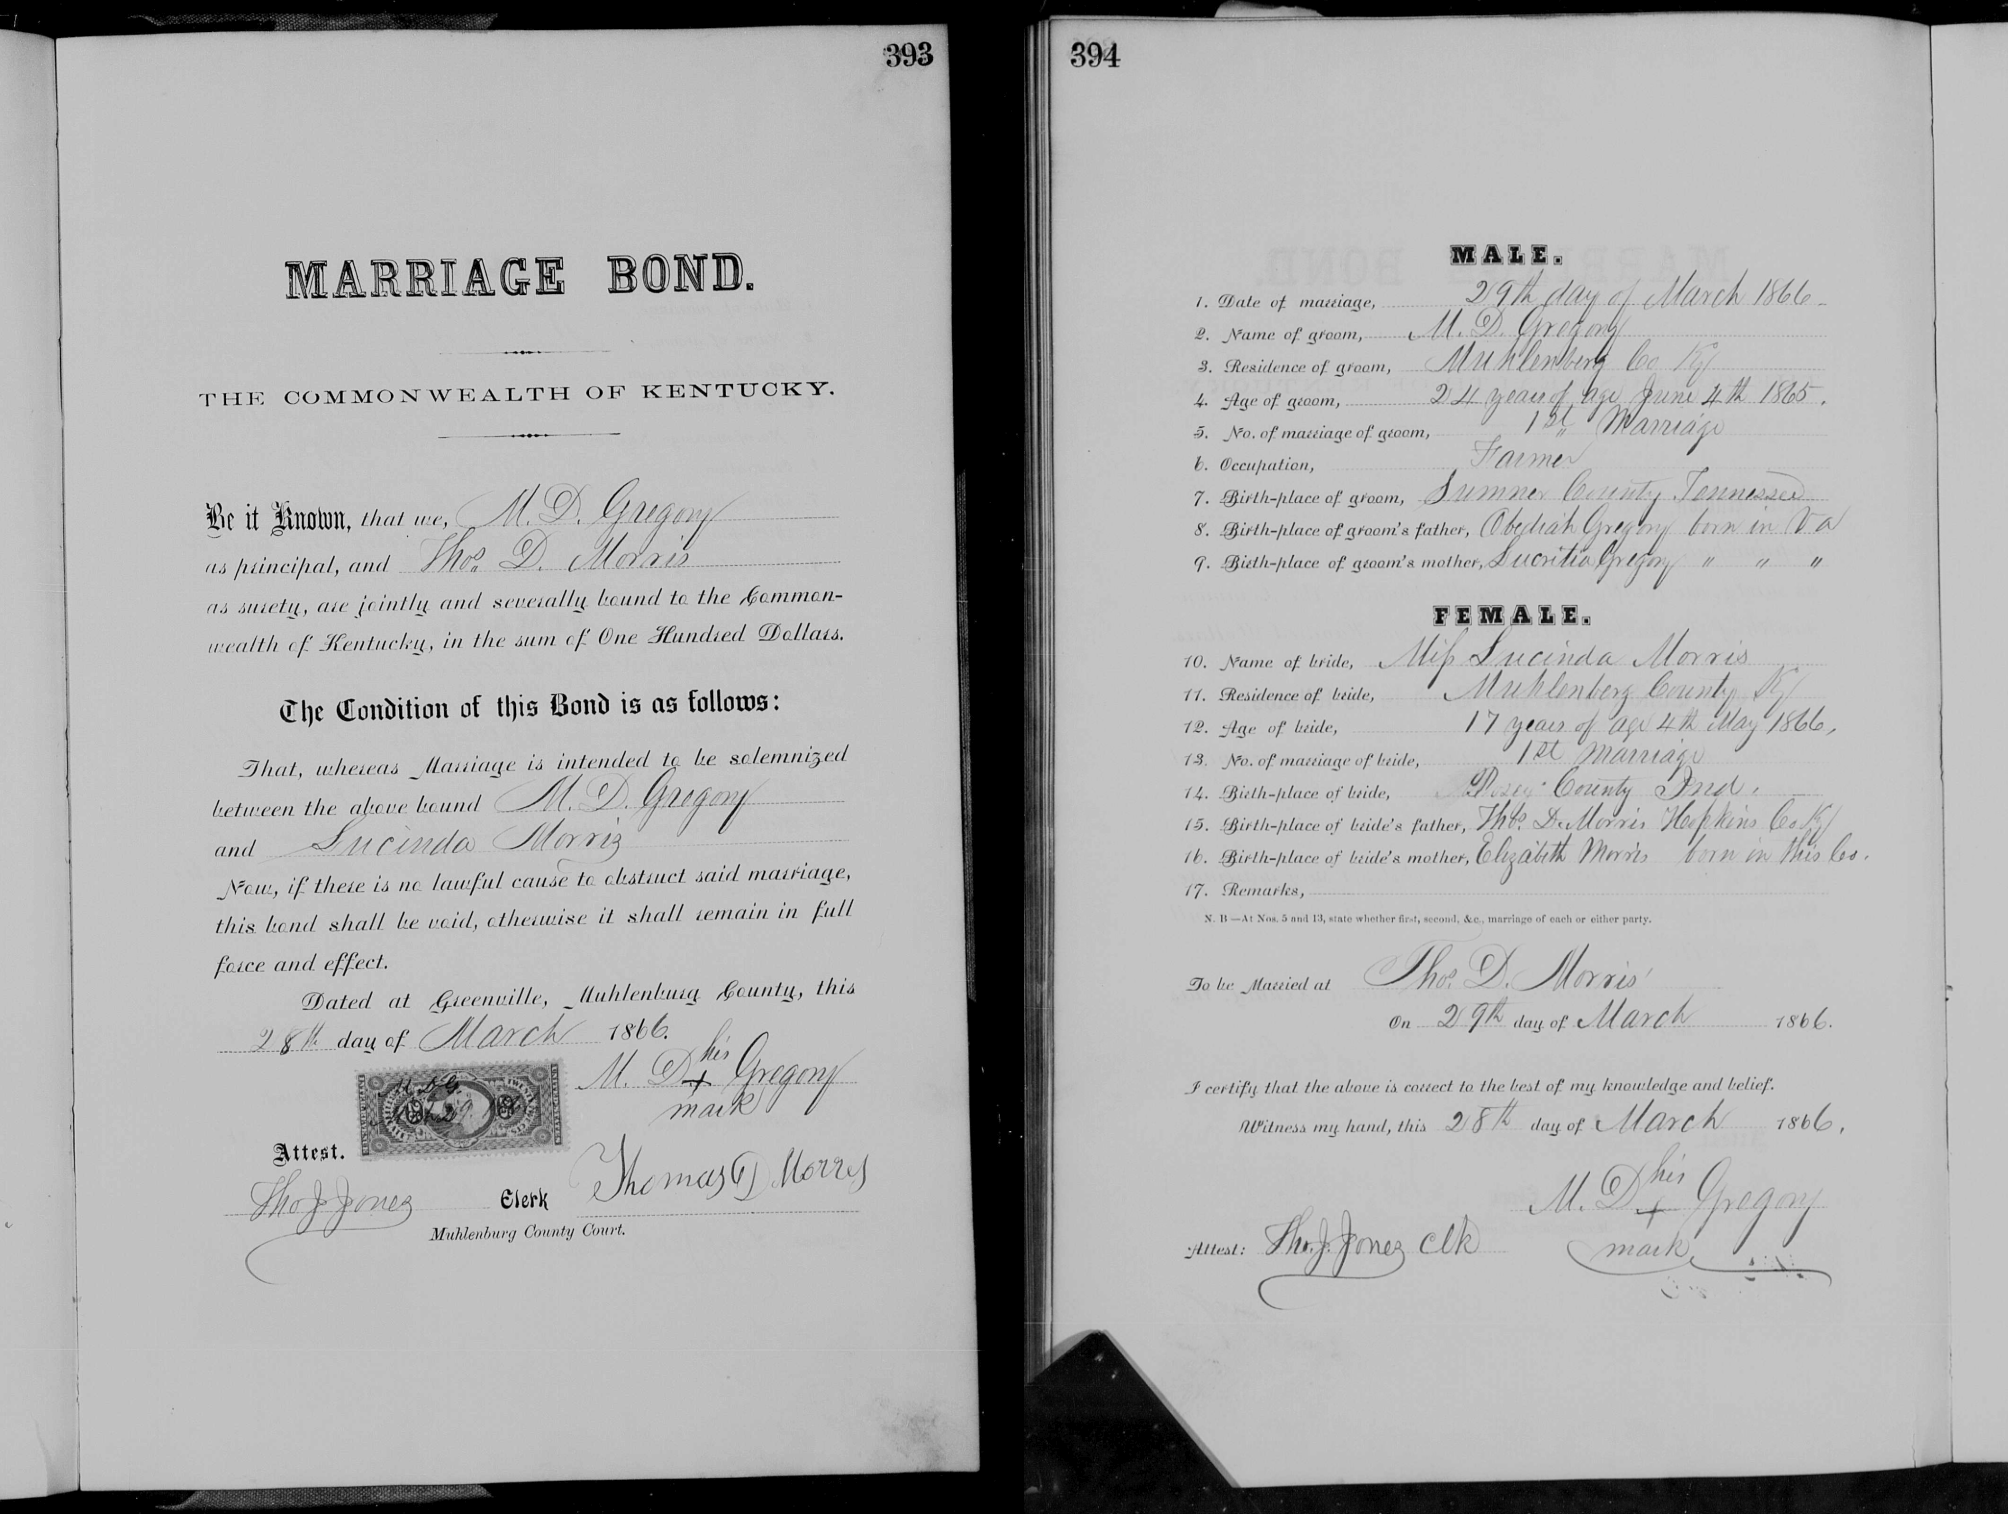 393
MARRIAGE BOND.
THE COMMONWEALTH OF KENTUCKY.
Be it Known, that we, M. D. Gregory
as principal, and Thos. D. Morris
as surety, are jointly and severally bound to the Common-
wealth of Kentucky, in the sum of One Hundred Dollars.
The Condition of this Bond is as follows:
That, whereas Marriage is intended to be solemnized
between the above bound M. D. Gregory
and Lucinda Morris
Now, if there is no lawful cause to obstruct said marriage,
this bond shall be void, otherwise it shall remain in full
force and effect.
Dated at Greenville, Muhlenburg County, this
28th day of March 1866.
M. D. his + Gregory
mark
M. D. G.
Attest.
Tho J Jones Clerk Thomas D Morris
Muhlenburg County Court.
394
MALE.
1. Date of marriage, 29th day of March 1866
2. Name of groom, M. D. Gregory
3. Residence of groom, Muhlenberg Co Ky
4. Age of groom, 24 years of age June 4th 1865.
5. No. of marriage of groom, 1st Marriage
6. Occupation, Farmer
7. Birth-place of groom, Sumner County Tennessee
8. Birth-place of groom's father, Obediah Gregory born in Va
9. Birth-place of groom's mother, Lucritia Gregory " " "
FEMALE.
10. Name of bride, Miss Lucinda Morris
11. Residence of bride, Muhlenberg County Ky
12. Age of bride, 17 years of age 4th May 1866,
13. No. of marriage of bride, 1st Marriage
14. Birth-place of bride, Posey County Ind.
15. Birth-place of bride's father, Thos. D. Morris Hopkins Co Ky
16. Birth-place of bride's mother, Elizabeth Morris born in this Co.
17. Remarks,
N. B —At Nos. 5 and 13, state whether first, second, &c., marriage of each or either party.
To be Married at Thos. D. Morris'
On 29th day of March 1866.
I certify that the above is correct to the best of my knowledge and belief.
Witness my hand, this 28th day of March 1866.
M. D. his + Gregory
Attest: Tho. J. Jones Clk mark